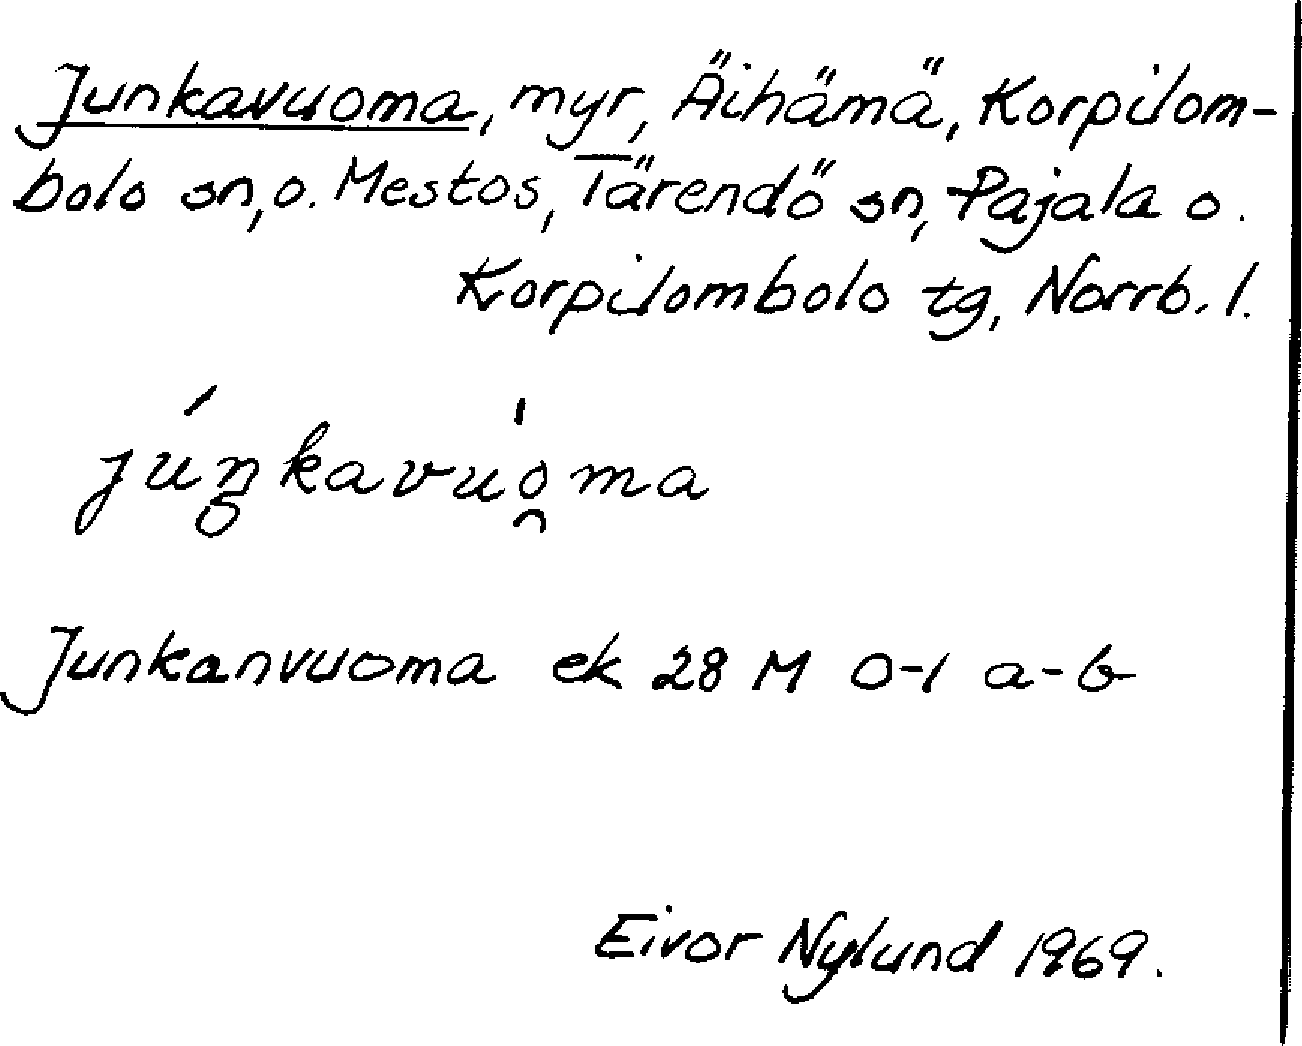 Junkavuoma, myr, Äihämä, Korpilom-
bolo sn, o. Mestos, Tärendö sn, Pajala o.
Korpilombolo tg, Norrb. l.
jún̥kavuo̯ma
Junkanvuoma ek 28 M 0-1 a-b
Eivor Nylund 1969.